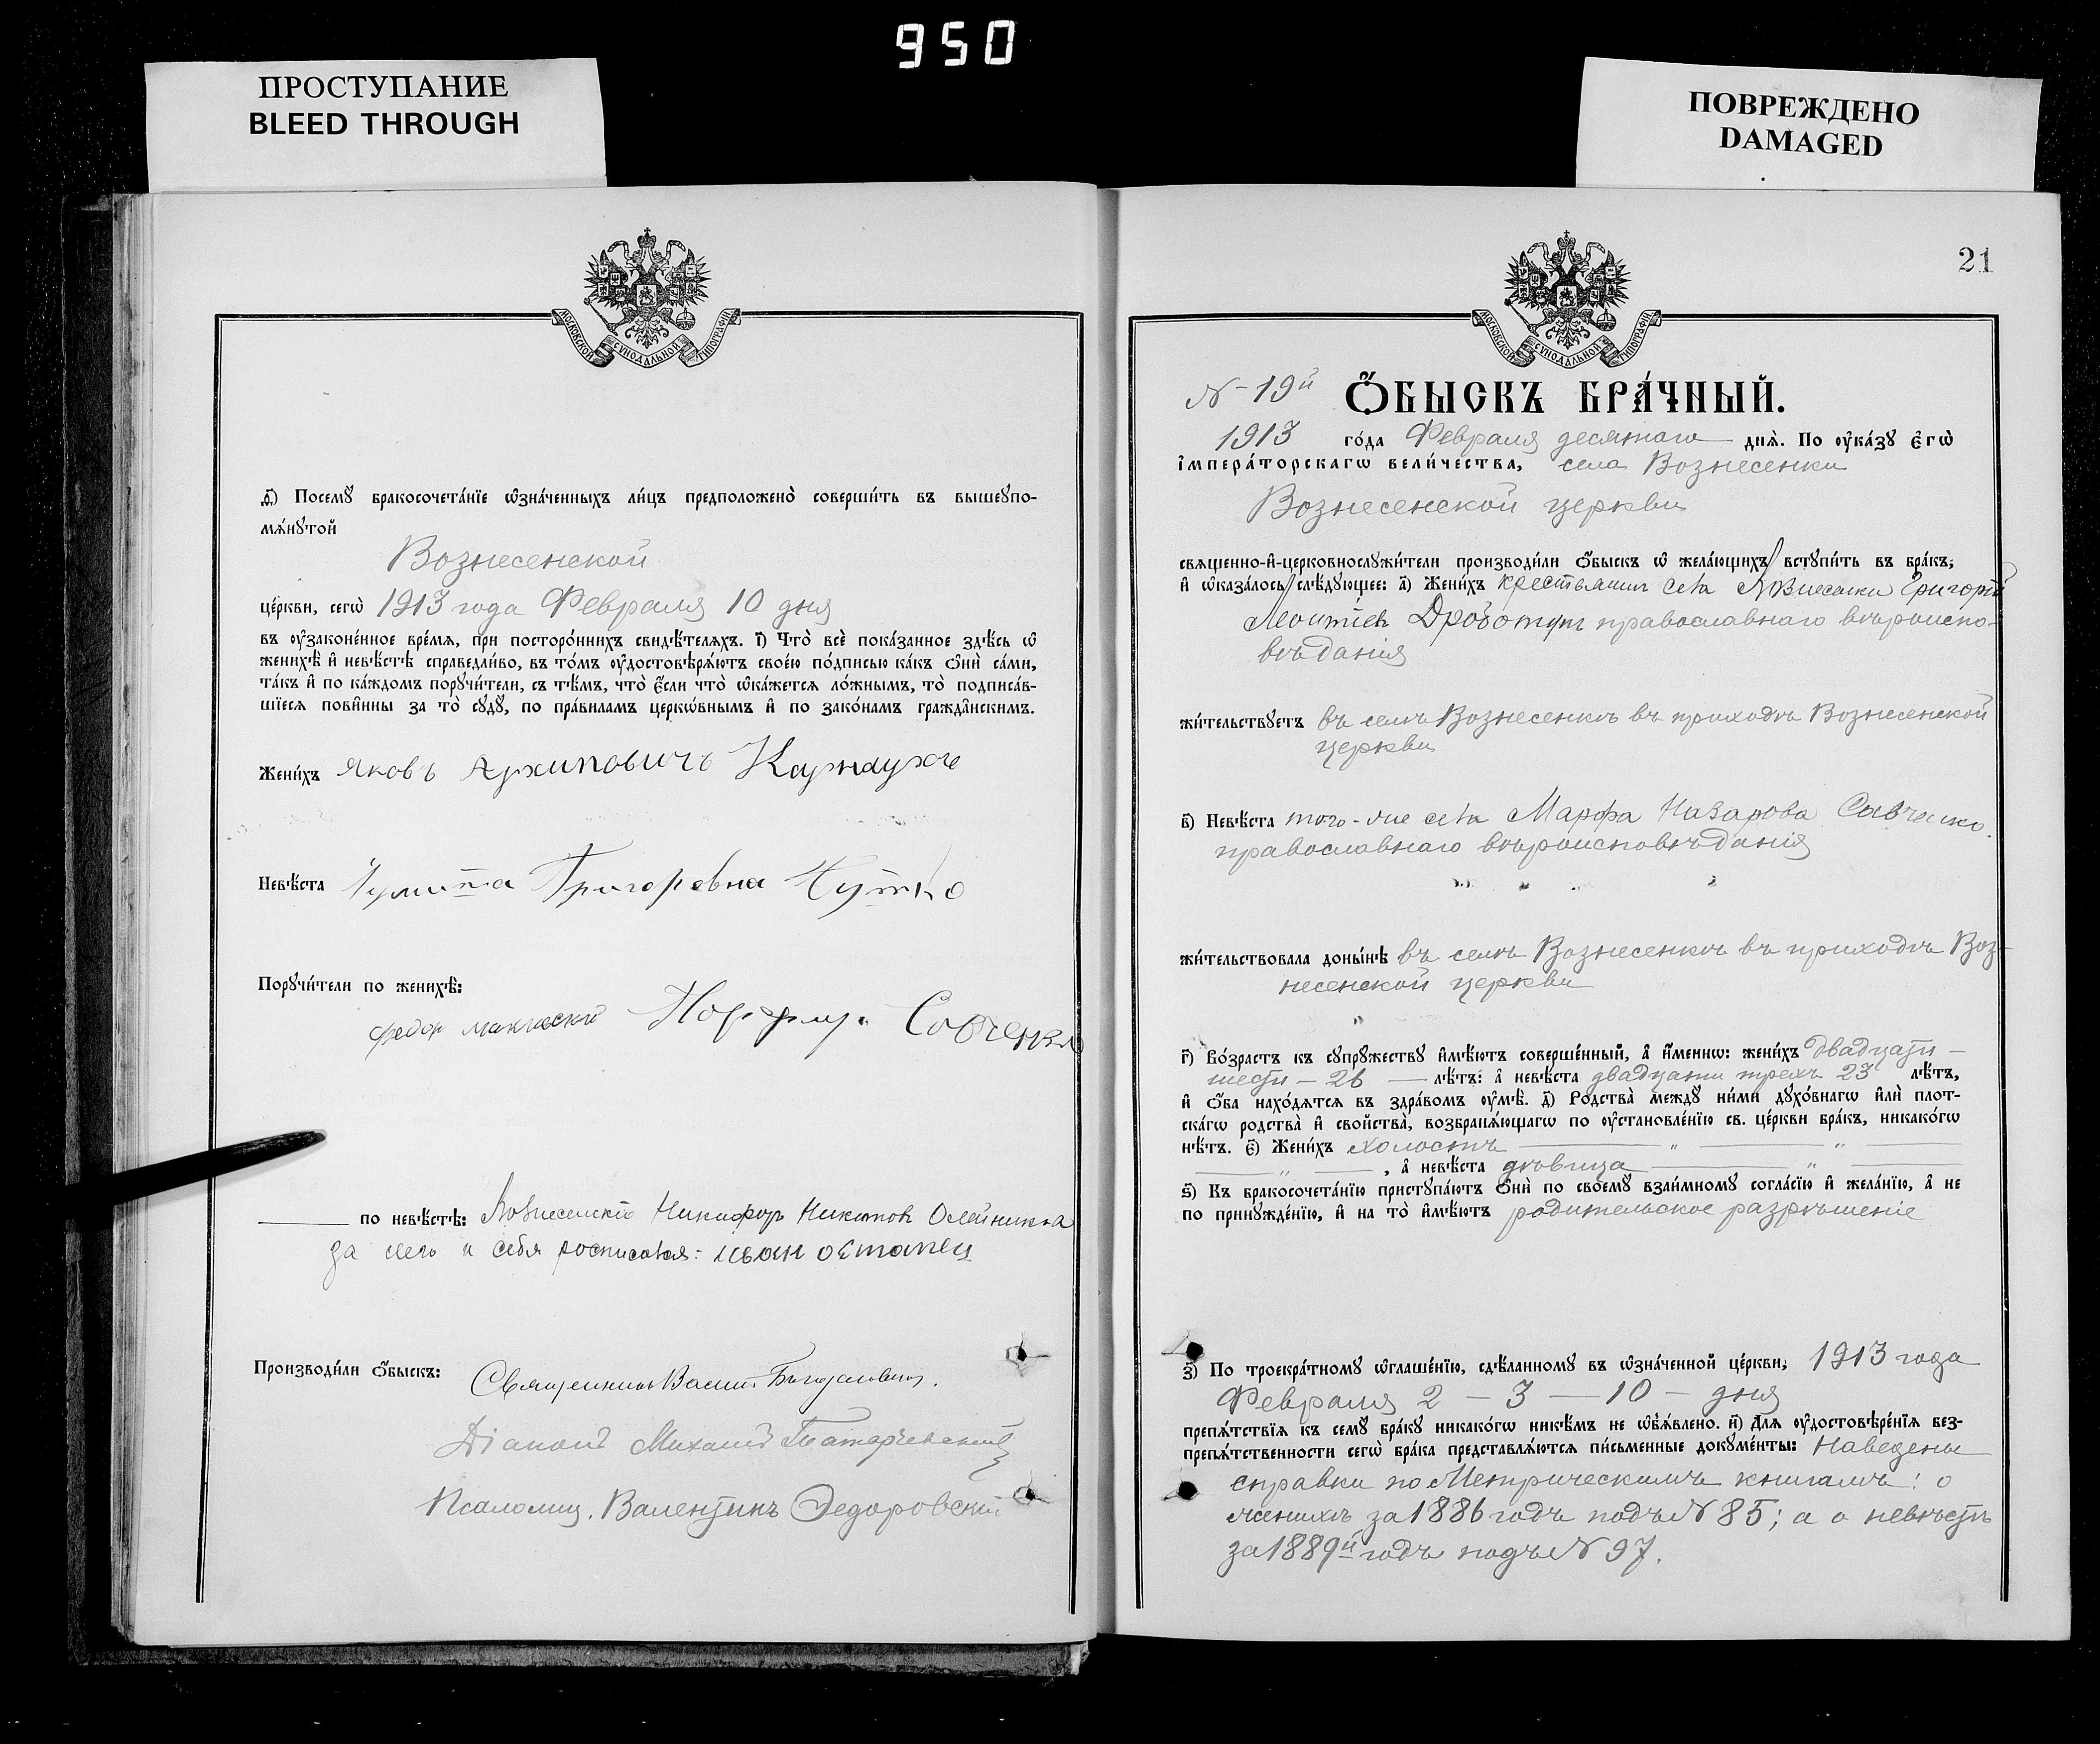 950
ПРОСТУПАНИЕ
BLEED THROUGH
ПОВРЕЖДЕНО
DAMAGED
МОСКОВСКОЙ СѴНОДАЛЬНОЙ ТИПОГРАФІИ
Ѳ҃) Посемꙋ̀ бракосочета́нїе ѡ҆зна́ченныхъ ли́цъ предположено̀ соверши́ть въ вышеꙋпо-
мѧ́нꙋтой
Вознесенской
це́ркви, сегѡ̀ 1913 года Февраля 10 дня
въ ᲂу҆законе́нное вре́мѧ, при посторо́ннихъ свидѣ́телѧхъ. І҃) Что̀ всѐ пока́занное здѣ́сь ѡ҆
женихѣ̀ и҆ невѣ́стѣ справедли́во, въ то́мъ ᲂу҆достовѣрѧ́ютъ свое́ю по́дписью ка́къ ѻ҆нѝ са́ми,
та́къ и҆ по ка́ждомъ порꙋчи́тели, съ тѣ́мъ, что̀ є҆́сли что̀ ѡ҆ка́жетсѧ ло́жнымъ, то̀ подписа́в-
шїесѧ пови́нны за то̀ сꙋдꙋ̀, по пра́виламъ церко́внымъ и҆ по зако́намъ гражда́нскимъ.
Жени́хъ Яковъ Архиповичъ Карнаухъ
Невѣ́ста Григоревна
Порꙋчи́тели по женихѣ̀:
федор Савченко
по невѣ́стѣ: Никифор Никитов Олейника
за него и себя росписался: иван остапец
Производи́ли ѻ҆́быскъ: Священникъ
Діаконъ Михаилъ
Псаломщ. Валентинъ Федоровскій
21
МОСКОВСКОЙ СѴНОДАЛЬНОЙ ТИПОГРАФІИ
N - 19й Ѻ҆́БЫСКЪ БРА́ЧНЫЙ.
1913 го́да Февраля десятаго днѧ̀. По ᲂу҆ка́зꙋ Є҆гѡ̀
І҆мпера́торскагѡ вели́чества, села Вознесенки
Вознесенской церкви
свѧщенно-и҆-церковнослꙋжи́тели производи́ли ѻ҆́быскъ ѡ҆ жела́ющихъ встꙋпи́ть въ бра́къ,
и҆ ѡ҆каза́лось слѣ́дꙋющее: а҃) Жени́хъ крестьянин села Вознесенки Григорій
Леонтіев Дроботун православнаго вѣроиспо-
вѣданія
жи́тельствꙋетъ въ селѣ Вознесенкѣ въ приходѣ Вознесенской
церкви
в҃) Невѣ́ста того-же села Марфа Назарова Савченко.
православнаго вѣроисповѣданія
жи́тельствовала доны́нѣ въ селѣ Вознесенкѣ въ приходѣ Воз-
несенской церкви
г҃) Во́зрастъ къ сꙋпрꙋ́жествꙋ и҆мѣ́ютъ соверше́нный, а҆ и҆́меннѡ: жени́хъ двадцати -
шести - 26 - лѣ́тъ: а҆ невѣ́ста двадцати трехъ 23 лѣ́тъ,
и҆ ѻ҆́ба нахо́дѧтсѧ въ здра́вомъ ᲂу҆мѣ̀. д҃) Родства̀ междꙋ̀ ни́ми дꙋхо́внагѡ и҆лѝ плот-
ска́гѡ родства̀ и҆ сво́йства, возбранѧ́ющагѡ по ᲂу҆становле́нїю св. це́ркви бра́къ, никако́гѡ
нѣ́тъ. є҃) Жени́хъ холостъ — " — " —
— " — , а҆ невѣ́ста дѣвица — " —
ѕ҃) Къ бракосочета́нїю пристꙋпа́ютъ ѻ҆нѝ по своемꙋ̀ взаи́мномꙋ согла́сїю и҆ жела́нїю, а҆ не
по принꙋжде́нїю, и҆ на то̀ и҆мѣ́ютъ родительское разрѣшеніе
з҃) По троекра́тномꙋ ѡ҆глаше́нїю, сдѣ́ланномꙋ въ ѡ҆зна́ченной це́ркви, 1913 года
Февраля 2 - 3 - 10 - дня
препѧ́тствїѧ къ семꙋ̀ бра́кꙋ никако́гѡ никѣ́мъ не ѡ҆б̾ѧ́влено. и҃) Длѧ̀ ᲂу҆достовѣре́нїѧ без-
препѧ́тственности сегѡ̀ бра́ка представлѧ́ютсѧ пи́сьменные докꙋме́нты: Наведены
справки по Метрическимъ книгамъ: о
женихѣ за 1886 годъ подъ N 85; а о невѣстѣ
за 1889й годъ подъ N 97.